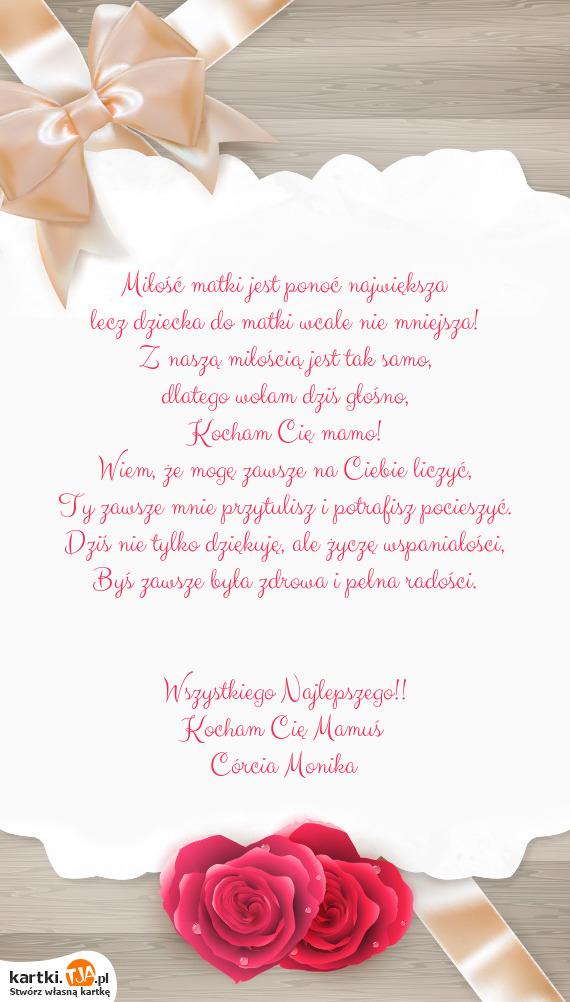 Miłość matki jest ponoć największa
lecz dziecka do matki wcale nie mniejsza!
Z naszą miłością jest tak samo,
dlatego wołam dziś głośno,
Kocham Cię mamo!
Wiem, że mogę zawsze na Ciebie liczyć,
Ty zawsze mnie przytulisz i potrafisz pocieszyć.
Dziś nie tylko dziękuję, ale życzę wspaniałości,
Byś zawsze była zdrowa i pełna radości.
Wszystkiego Najlepszego!!
Kocham Cię Mamuś
Córcia Monika
kartki.TJA.pl
Stwórz własną kartkę